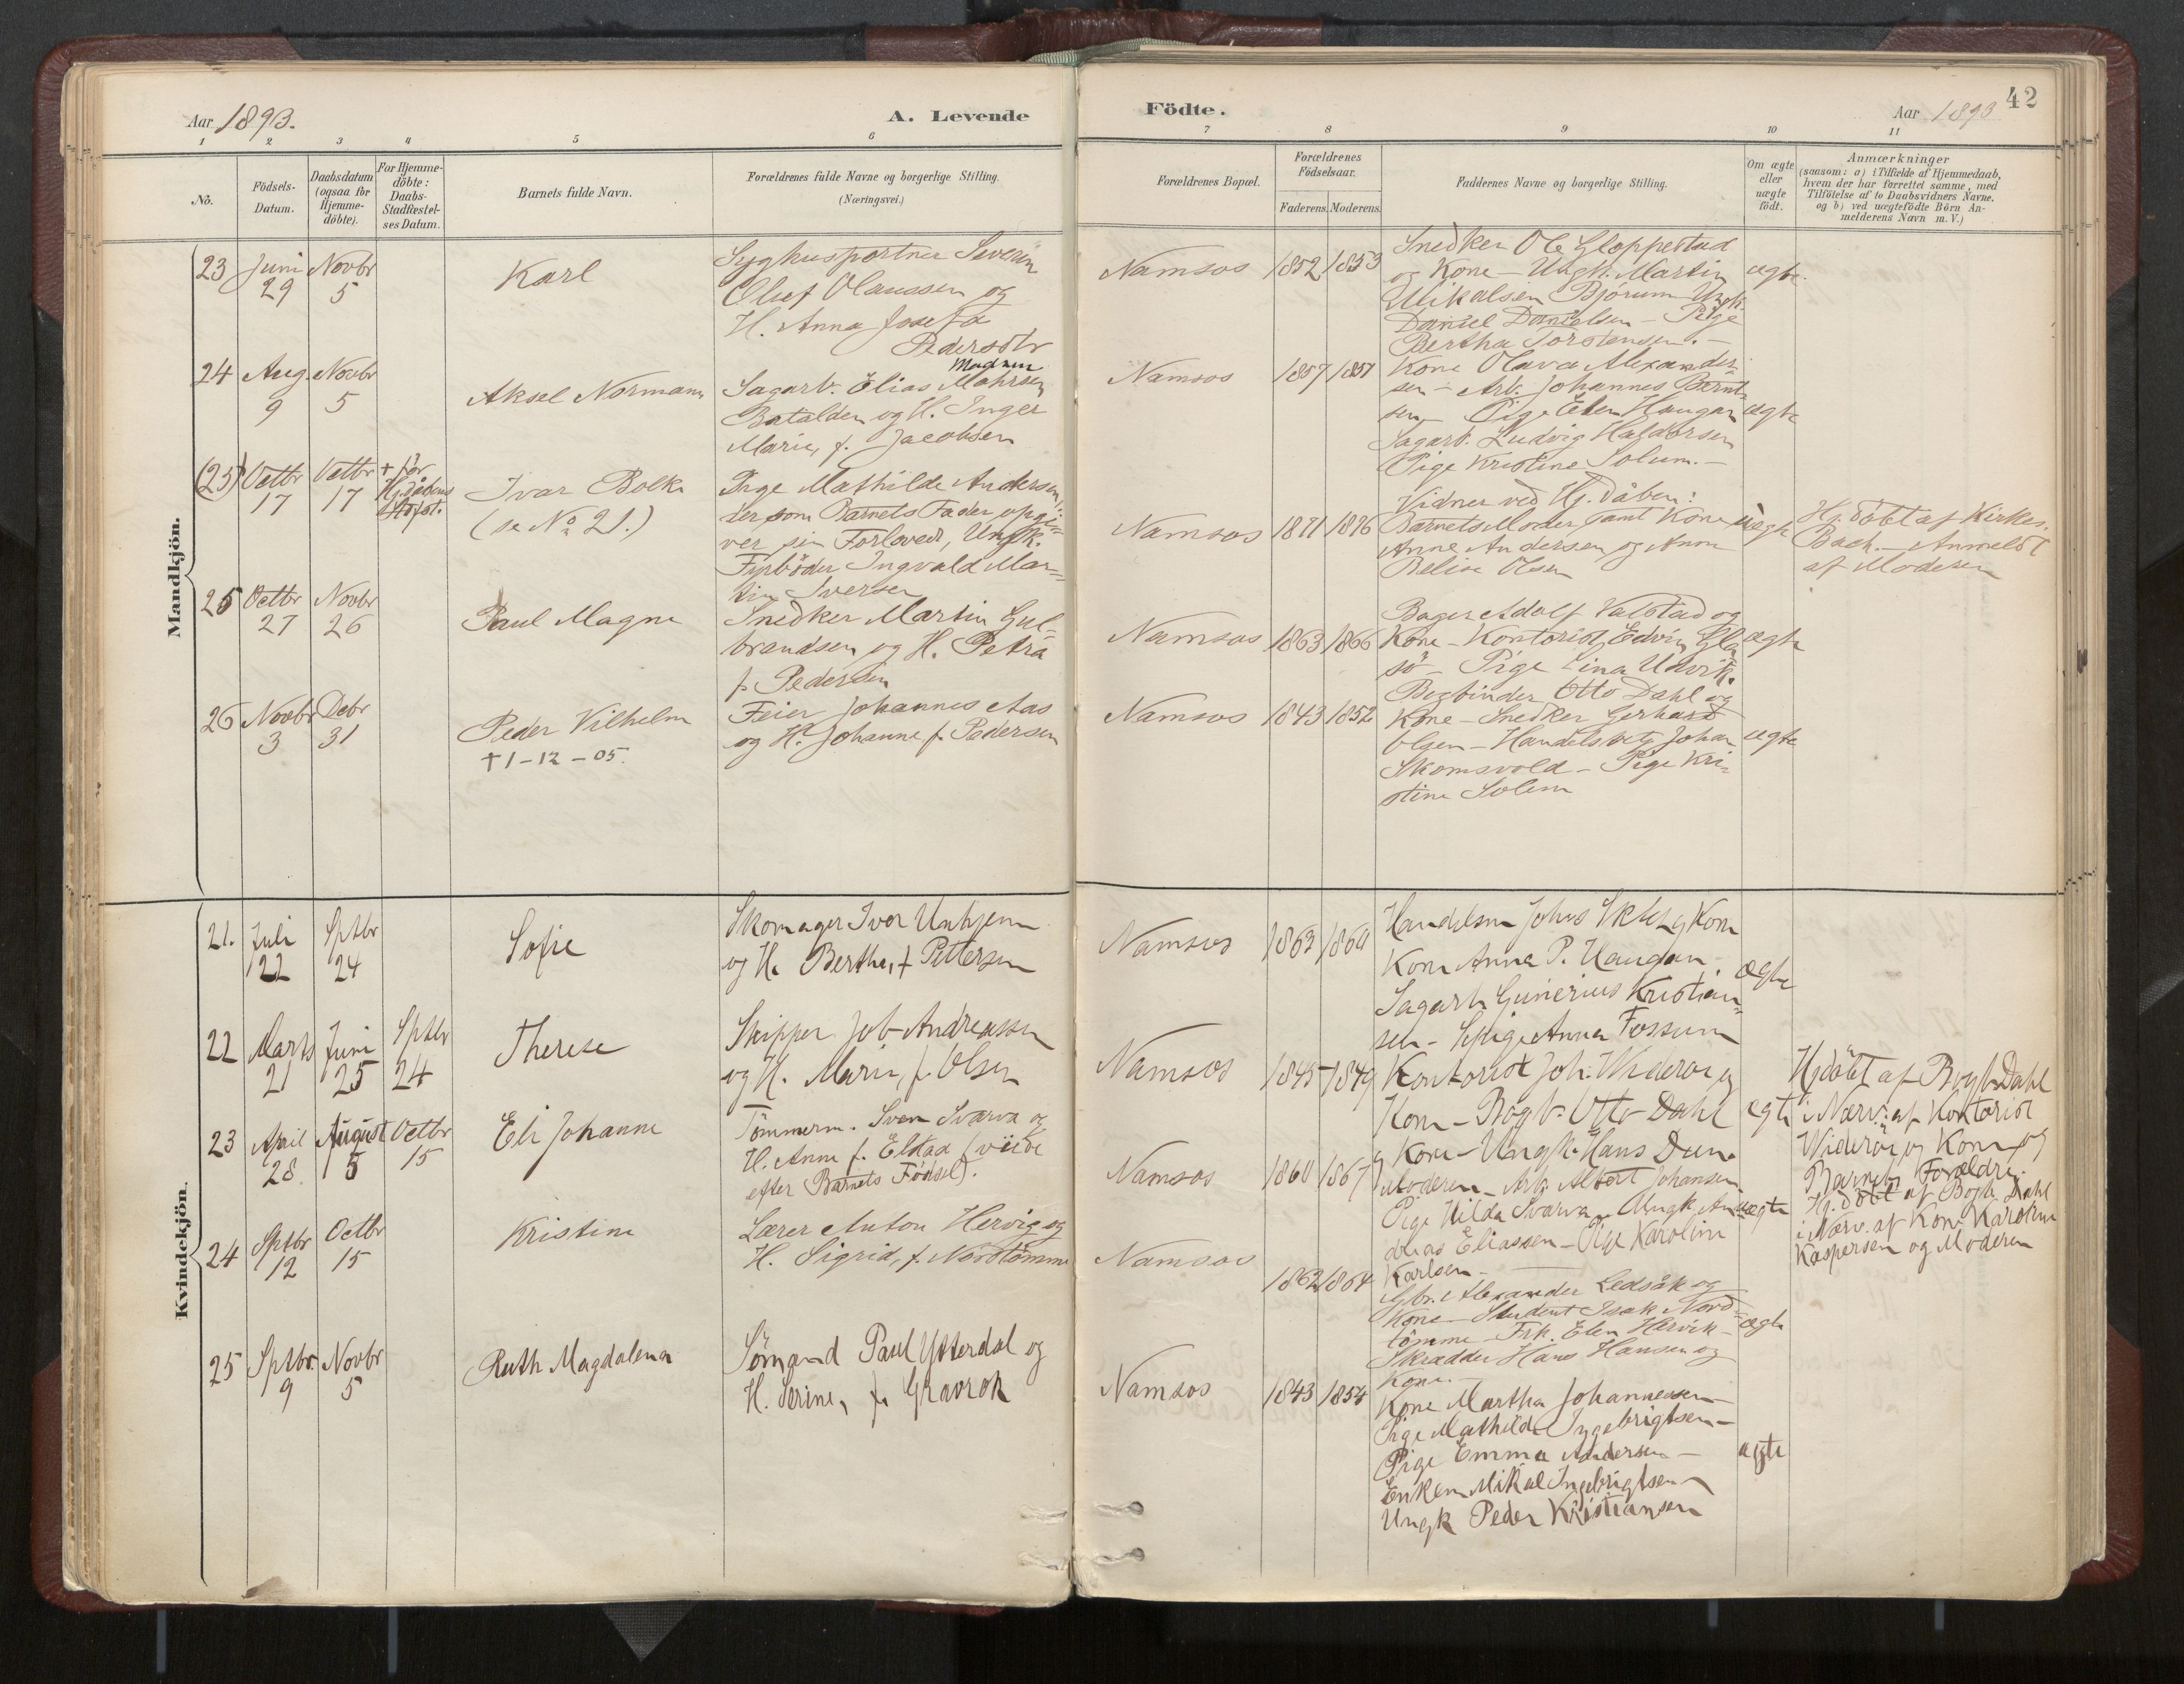 Aar 1893.
A. Levende
1 2 3 4 5 6
No.
Födsels-Datum.
Daabsdatum (ogsaa for Hjemme-döbte).
For Hjemme-döbte: Daabs-Stadfæstel-ses Datum.
Barnets fulde Navn.
Forældrenes fulde Navne og borgerlige Stilling.
(Næringsvei.)
Mandkjön.
23 Juni 29 Novbr 5
Karl
Syghusportner Severin
Oluf Olaussen og
H. Anna Josefa
Pedersdtr
24 Aug. 9 Novbr 5
Aksel Normann
Madsen
Sagarb. Elias Mahrsen
Batalden og H. Inger
Marie, f. Jacobsen
(25) Octbr 17 Octbr 17
+ før
Hj.dåbens
Stdfst.
Ivar Bolk
(se No 21.)
Pige Mathilde Andersen,
der som Barnets Fader opgi-
ver sin Forlovede, Ungk.
Fyrböder Ingvald Mar-
tin Iversen
25 Octbr 27 Novbr 26
Paul Magne
Snedker Martin Gul-
brandsen og H. Petra
f. Pedersen
26 Novbr 3 Debr 31
Peder Vilhelm
† 1-12-05.
Feier Johannes Aas
og H. Johanne f. Pedersen
Kvindekjön.
21. Juli 22 Sptbr 24
Sofie
Skomager Ivor Unhjem
og H. Bertha, f Pettersen
22 Marts 21 Juni 25 Sptbr 24
Therese
Skipper Job Andreassen
og H. Marie, f. Olsen
23 April 28. August 5 Octbr 15
Eli Johanne
Tömmerm. Sven Svarva og
H. Anne f. Elstad (viede
efter Barnets Födsel).
24 Sptbr 12 Octbr 15
Kristine
Lærer Anton Hervig og
H. Sigrid, f. Nordtömme
25 Sptbr. 9 Novbr 5
Ruth Magdalena
Sömand Paul Ytterdal og
H. Serine, f. Gravrok
Födte.
Aar 1893
42
7 8 9 10 11
Forældrenes Bopæl.
Forældrenes Födselsaar.
Faderens. Moderens.
Faddernes Navne og borgerlige Stilling.
Om ægte eller uægte födt.
Anmærkninger
(saasom: a) i Tilfælde af Hjemmedaab,
hvem der har forrettet samme, med
Tilföielse af to Daabsvidners Navne,
og b) ved uægtefödte Börn An-
melderens Navn m. V.)
Namsos 1852 1853
Snedker Ole Gloppestad
og Kone – Ungk. Martin
Mikalsen Bjórum Ungk.
Daniel Danielsen – Pige
Bertha Torstensen. –
ægte.
Namsos 1857 1857
Kone Olava Alexander-
sen – Arb. Johannes Bernt-
sen – Pige Elen Haugan
Sagarb. Ludvig Haldorsen
Pige Kristine Solum. –
ægte
Namsos 1871 1876
Vidner ved Hj. dåben:
Barnets Moder samt Kone
Anne Andersen og Anne
Olsen
uægte
Hj. döbt af Kirkes.
Bach. – Anmeldt
af Moderen
Namsos 1863 1866
Bager Adolf Valstad og
Kone – Kontorist Edvin Gla
sö – Pige Lina Udvik.
ægte
Namsos 1843 1852
Bogbinder Otto Dahl og
Kone – Snedker Gerhard
Olsen – Handelsbetj. Johan
Skomsvold – Pige Kri-
stine Solem
ægte
Namsos 1863 1860
Kone Anna P. Haugan –
Sagarb Gunerius Kristian-
sen – Pige Anna Fossum
ægte
Namsos 1845 1849
Kontorist Joh. Wideröe og
Kone – Bogb. Otto Dahl
og Kone – Ungk. Hans Dun.
ægte
Hjdöbt af Bogb. Dahl
i Nærv. af Kontorist
Wideröe og Kone og
Barnets Forældre.
Namsos 1860 1867
Moderen – Arb Albert Johansen
Pige Hilda Svarva – Ungk An-
dreas Eliassen – Pige Karoline
Karlsen –
uægte
Hj. döbt af Bogb. Dahl
i Nærv. af Kone Karoline
Kaspersen og Moderen
Namsos 1862 1864
Gbr. Alexander Ledsåk og
Kone – Student Isak Nord-
tömme – Frk. Elen Hervik –
Skrædder Hans Hansen og
Kone. –
ægte
Namsos 1843 1854
Kone Martha Johannessen –
Pige Mathilde Ingebrigtsen –
Pige Emma Andersen –
Enkem Mikal Ingebrigtsen
Ungk Peder Kristiansen
ægte